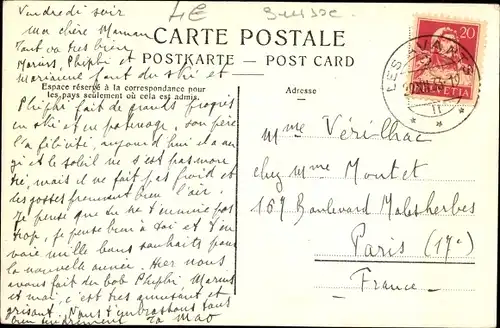 Vendredi soir
LE Suisse
ma chère Maman
Tout va très bien
Marius, Phiphi et
Marianne font du ski et
CARTE POSTALE
POSTKARTE — POST CARD
Espace réservé à la correspondance pour
les pays seulement où cela est admis.
Adresse
20
HELVETIA
LES AVANTS
Phiphi fait de grands progrès
en ski et en patinage, son père
l'a félicité, aujourd'hui il a
et le soleil ne s'est pas mon
tré, mais il ne fait pas froid et
les gosses prennent bien l'air.
Je pense que tu ne t'ennuie pas
trop, je pense bien à toi et t'en
voie mille bons souhaits pour
la nouvelle année. Hier nous
avons fait du bob Phiphi Marius
et moi, c'est très amusant et
grisant. Nous t'embrassons tous
bien tendrement
Mme Vérilhac
chez Mme Montet
167 Boulevard Malesherbes
Paris (17e)
France